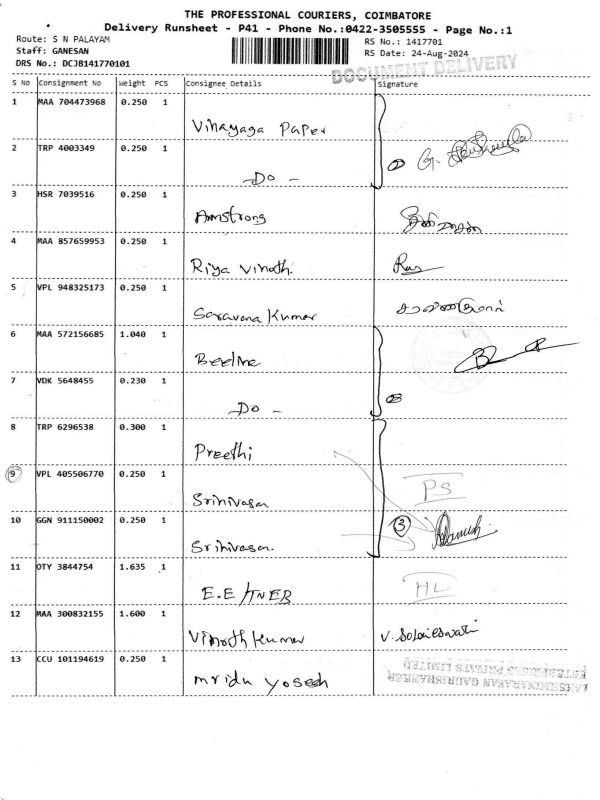 THE PROFESSIONAL COURIERS, COIMBATORE
Delivery Runsheet - P41 - Phone No.:0422-3505555 - Page No.:1
Route: S N PALAYAM
RS No.: 1417701
Staff: GANESAN
RS Date: 24-Aug-2024
DRS No.: DCJB141770101
DOCUMENT DELIVERY
S No Consignment No Weight PCS Consignee Details Signature
1 MAA 704473968 0.250 1
Vinayaga Paper
2 TRP 4003349 0.250 1
Do - G.
3 HSR 7039516 0.250 1
Armstrong
4 MAA 857659953 0.250 1
Riya Vinoth.
5 VPL 948325173 0.250 1
Saravana Kumar
6 MAA 572156685 1.040 1
Beeline
7 VDK 5648455 0.230 1
Do -
8 TRP 6296538 0.300 1
Preethi
9 VPL 405506770 0.250 1
Srinivasan PS
10 GGN 911150002 0.250 1
Srinivasan 3
11 OTY 3844754 1.635 1
E.E /TNEB HL
12 MAA 300832155 1.600 1
Vinoth Kumar
13 CCU 101194619 0.250 1
mridu yoseph
LAKSHMINARAYAN GAURISHANKER
ENTERPRISES PRIVATE LIMITED